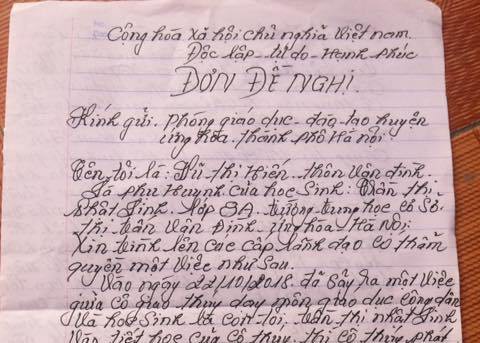 Cộng hòa xã hội chủ nghĩa Việt nam.
Độc lập - tự do - Hạnh phúc
ĐƠN ĐỀ NGHỊ.
Kính gửi. Phòng giáo dục - đào tạo huyện
ứng hòa. thành phố Hà nội.
Tên tôi là: Vũ thị Hiến. thôn Vân đình.
Là phụ Huynh của học sinh: Trần thị
Nhất Linh. lớp 8A. trường trung học cơ Sở.
thị trấn Vân Đình. ứng hòa Hà Nội.
Xin trình lên các cấp Lãnh đạo có thẩm
quyền một việc như Sau.
Vào ngày 22/10/2018. đã sảy ra một việc
giữa cô giáo thủy dạy môn giáo dục công dân
Và học sinh là con tôi, trần thị nhất Linh
tiết học của cô thủy thì cô thủy phát